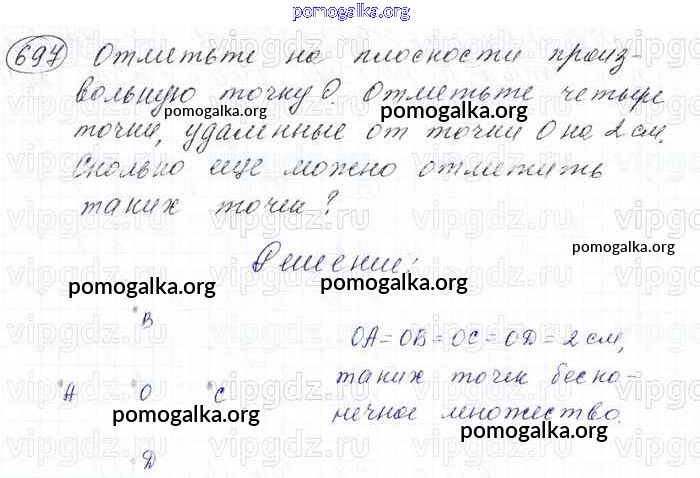 pomogalka.org
697 Отметьте на плоскости произ-
вольную точку О. Отметьте четыре
pomogalka.org pomogalka.org
точки, удаленные от точки О на 2 см.
Сколько еще можно отметить
таких точек?
pomogalka.org
Решение:
pomogalka.org pomogalka.org
B
OA=OB=OC=OD=2 см,
таких точек беско-
A O C
нечное множество.
pomogalka.org
pomogalka.org
D
vipgdz.ru vipgdz.ru vipgdz.ru